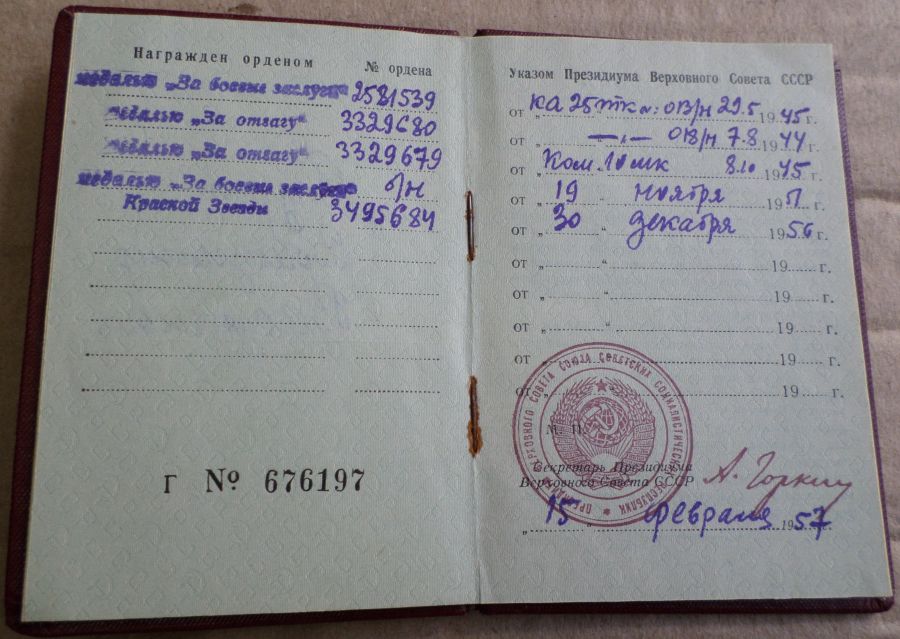 Награжден орденом
№ ордена
медалью „За боевые заслуги" 2581539
медалью „За отвагу" 3329680
медалью „За отвагу" 3329679
медалью „За боевые заслуги" б/н
Красной Звезды 3495684
Г № 676197
Указом Президиума Верховного Совета СССР
от „ КА 25 тк 013/н 29.5 1945 г.
от „ —„— 018/н 7.8 1944 г.
от „ Ком. 10 мк 8.10 1945 г.
от „ 19 “ ноября 1951 г.
от „ 30 “ декабря 1956 г.
от „ “ 19 г.
от „ “ 19 г.
от „ “ 19 г.
от „ “ 19 г.
от „ “ 19 г.
ПРЕЗИДИУМ ВЕРХОВНОГО СОВЕТА СОЮЗА СОВЕТСКИХ СОЦИАЛИСТИЧЕСКИХ РЕСПУБЛИК
М. П.
Секретарь Президиума
Верховного Совета СССР
А. Горкин
„ 15 “ февраля 1957